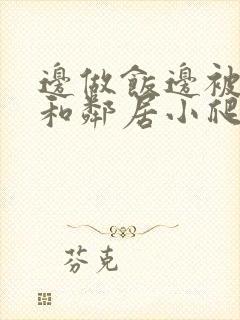 邊做飯邊被
和鄰居小爬
芬克